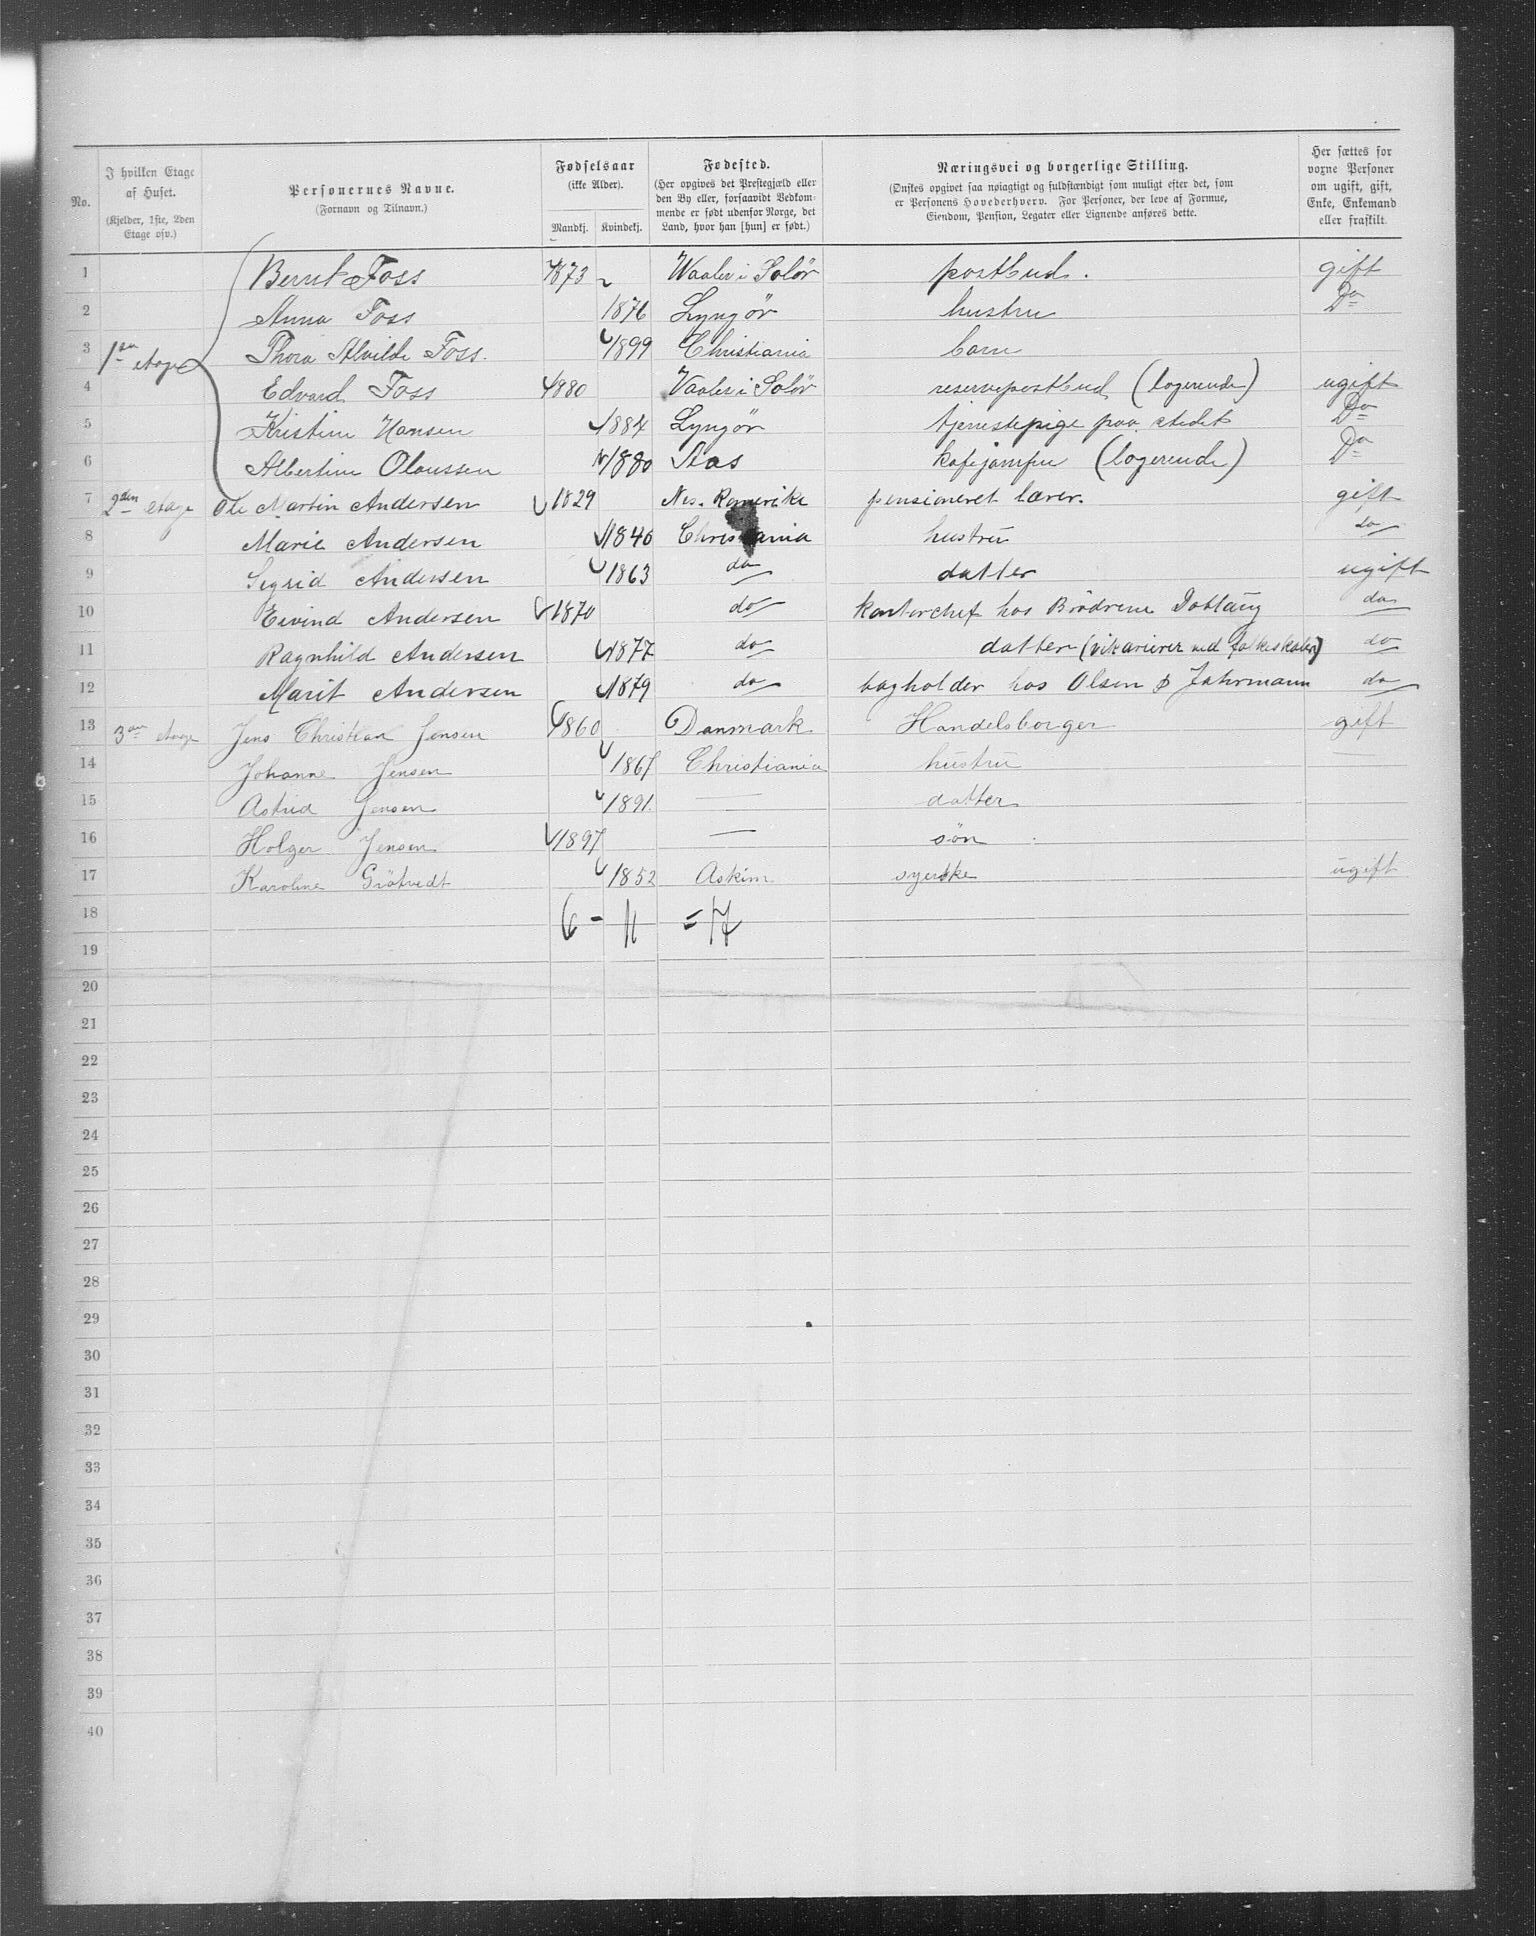 No.
I hvilken Etage af Huset.
(Kjelder, 1ste, 2den Etage osv.)
Personernes Navne.
(Fornavn og Tilnavn.)
Fødselsaar
(ikke Alder).
Mandkj. Kvindekj.
Fødested.
(Her opgives det Prestegjæld eller den By eller, forsaavidt Vedkommende er født udenfor Norge, det Land, hvor han [hun] er født.)
Næringsvei og borgerlige Stilling.
(Ønskes opgivet saa nøiagtigt og fuldstændigt som muligt efter det, som er Personens Hovederhverv. For Personer, der leve af Formue, Eiendom, Pension, Legater eller Lignende anføres dette.
Her sættes for voxne Personer om ugift, gift, Enke, Enkemand eller fraskilt.
1 Bernt Foss 1873 Waaler i Solör postbud. gift
2 Anna Foss 1876 Lyngör hustru Do
3 1ste etage Thora Alvilde Foss. 1899 Christiania barn
4 Edvard Foss 1880 Vaaler i Solör reservepostbud (logerende) ugift
5 Kristine Hansen 1884 Lyngör tjenestepige paa stedet Do
6 Albertine Olaussen 1880 Aas kafejomfru (logerende) Do
7 2den etage Ole Martin Andersen 1829 Nes. Romerike pensioneret lærer. gift
8 Marie Andersen 1840 Christiania hustru do
9 Sigrid Andersen 1863 do datter ugift
10 Eivind Andersen 1870 do kontorchef hos Brödrene Dobloug do
11 Ragnhild Andersen 1877 do datter (vikarierer ved folkeskolen) do
12 Marit Andersen 1879 do bogholder hos Olsen & Jahrmann do
13 3die etage Jens Christian Jensen 1860 Danmark Handelsborger gift
14 Johanne Jensen 1867 Christiania hustru —
15 Astrid Jensen 1891. — datter
16 Holger Jensen 1897 — sön
17 Karoline Grötvedt 1852 Askim syerske ugift
18 6 - 11 = 17
19
20
21
22
23
24
25
26
27
28
29
30
31
32
33
34
35
36
37
38
39
40